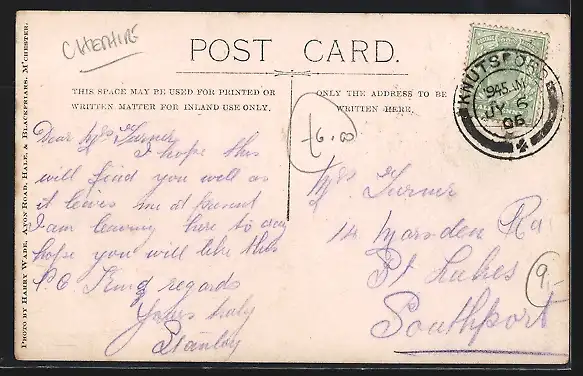 CHESHIRE
POST CARD.
THIS SPACE MAY BE USED FOR PRINTED OR
WRITTEN MATTER FOR INLAND USE ONLY.
ONLY THE ADDRESS TO BE
WRITTEN HERE.
KNUTSFORD
945 AM
JY 6
06
PHOTO BY HARRY WADE, AVON ROAD, HALE, & BLACKFRIARS, M'CHESTER.
£6.00
Dear Mrs Turner
I hope this
will find you well as
it leaves me at present
I am leaving here to day
hope you will like this
P.C. Kind regards
Yours truly
Stanley
Mrs Turner
14 Marsden Rd
St Lukes
Southport
9.